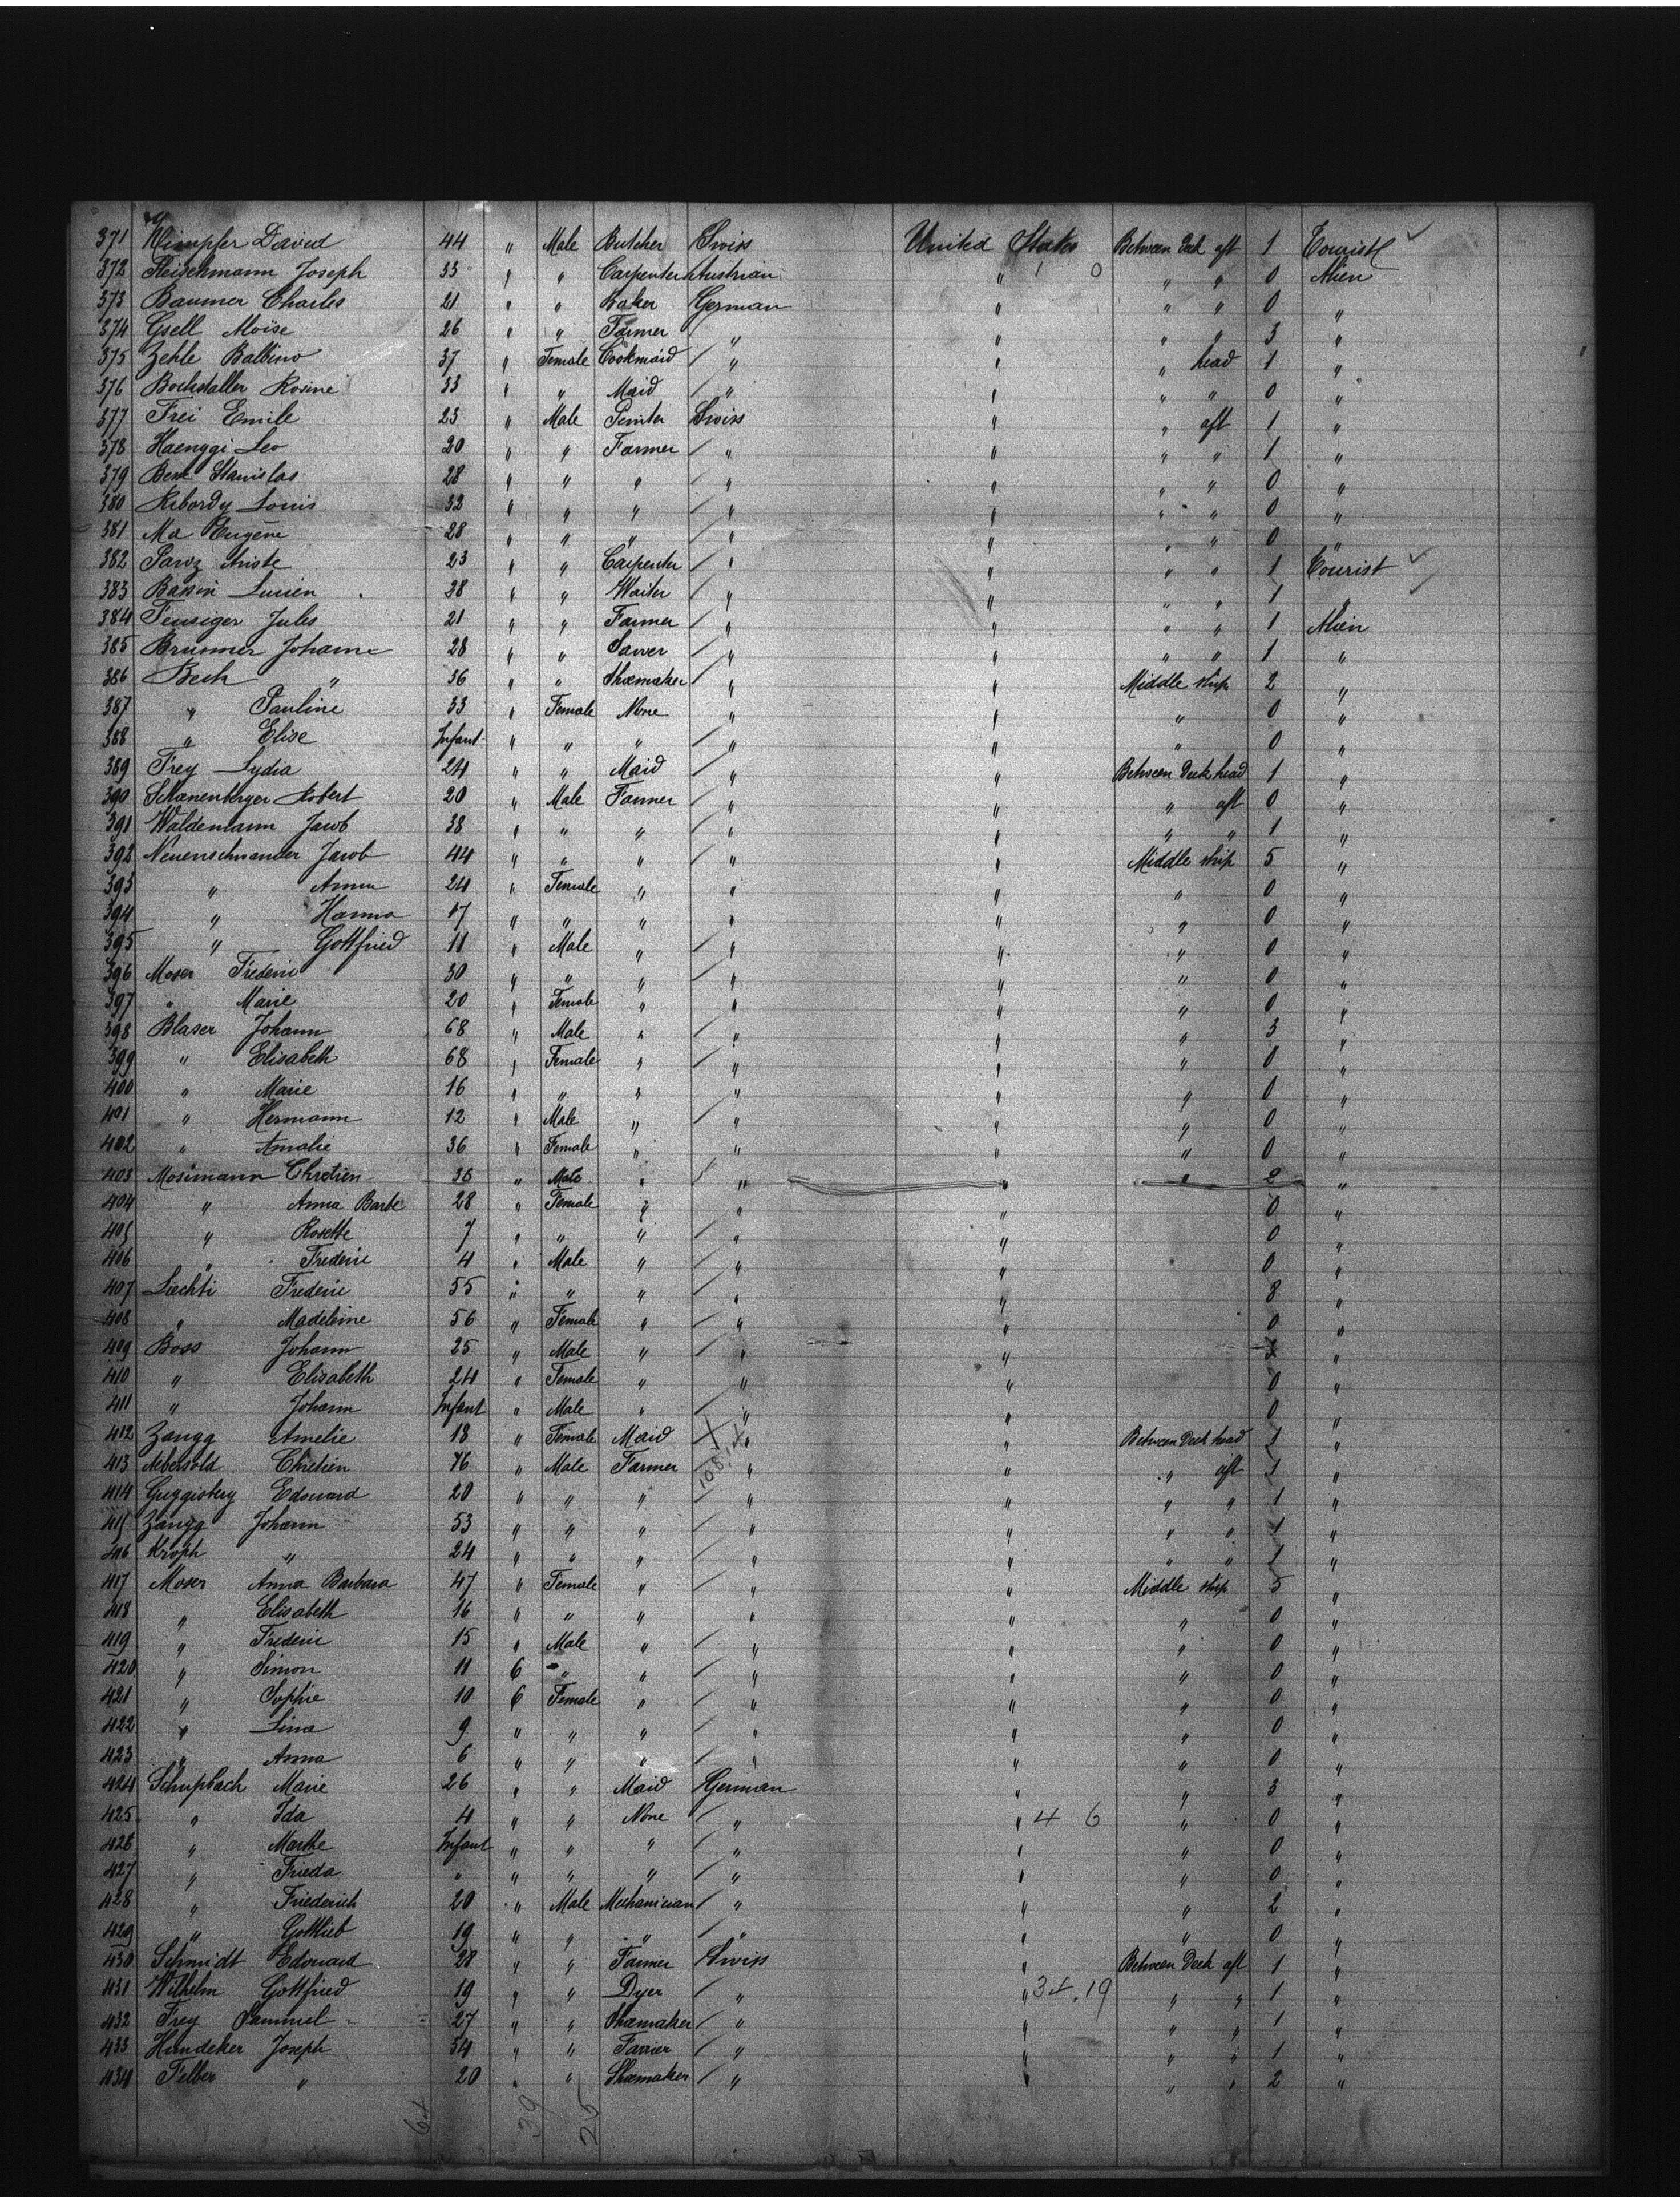 371 Klimpfer David 44 " Male Butcher Swiss United States Between Deck aft 1 Tourist ✓
372 Fleischmann Joseph 33 " " Carpenter Austrian " 1 0 " " 0 Alien
373 Baumer Charles 21 " " Baker German " " " 0 "
374 Gsell Moïse 26 " " Farmer " " " " 3 "
375 Zehle Balbino 37 " Female Cookmaid / " " " head 1 "
376 Bochstaller Rosine 33 " " Maid / " " " " 0 "
377 Frei Emile 23 " Male Swiss " " aft 1 "
378 Haenggi Leo 20 " " Farmer / " " " " 1 "
379 Stanislas 28 " " " / " " " " 0 "
380 Ribordy Louis 32 " " " / " " " " 0 "
381 Eugene 28 " " " / " " " " 0 "
382 Paroz Ariste 23 " " Carpenter / " " " " 1 Tourist ✓
383 Bassin Lucien 38 " " Waiter / " " " " 1 " ✓
384 Jules 21 " " Farmer / " " " " 1 Alien
385 Brunner Johann 28 " " / " " " " 1 "
386 Bech " 36 " " Shoemaker / " " Middle ship 2 "
387 " Pauline 33 " Female None " " " 0 "
388 " Elise Infant " " " / " " " 0 "
389 Frey Lydia 24 " " Maid / " " Between Deck head 1 "
390 Robert 20 " Male Farmer / " " " aft 0 "
391 Waldemann Jacob 38 " " " / " " " " 1 "
392 Neuenschwander Jacob 44 " " " / " " Middle ship 5 "
393 " Anna 24 " Female " " " " 0 "
394 " Hanna 17 " " " " " " 0 "
395 " Gottfried 11 " Male " / " " " 0 "
396 Moser Frederic 30 " " " / " " " 0 "
397 " Marie 20 " Female " " " " 0 "
398 Blaser Johann 68 " Male " / " " " 3 "
399 " Elisabeth 68 " Female " / " " " 0 "
400 " Marie 16 " " " " " " 0 "
401 " Hermann 12 " Male " / " " " 0 "
402 " Amalie 36 " Female " " " " 0 "
403 Mosimann Chretien 36 " Male " / " " " 2 "
404 " Anna Barbe 28 " Female " / " " 0 "
405 " Rosette 7 " " " / " " 0 "
406 " Frederic 4 " Male " / " " 0 "
407 Liechti Frederic 55 " " " / " " 8 "
408 " Madeleine 56 " Female " / " " 0 "
409 Boss Johann 25 " Male " / " " "
410 " Elisabeth 24 " Female " " " 0 "
411 " Johann Infant " Male " / " " 0 "
412 Zaugg Amelie 18 " Female Maid " " Between Deck head 1 "
413 Aebersold Chretien 76 " Male Farmer / " " " aft 1 "
414 Guggisberg Edouard 20 " " " / " " " " 1 "
415 Zaugg Johann 53 " " " / " " " " 1 "
416 Kroph " 24 " " " / " " " " 1 "
417 Moser Anna Barbara 47 " Female " / " " Middle ship 5 "
418 " Elisabeth 16 " " " / " " " 0 "
419 " Frederic 15 " Male " / " " " 0 "
420 " Simon 11 6 " " / " " " 0 "
421 " Sophie 10 6 Female " / " " " 0 "
422 " Lina 9 " " " / " " " 0 "
423 " Anna 6 " " " / " " " 0 "
424 Schupbach Marie 26 " " Maid German " " 3 "
425 " Ida 4 " " None / " " 4 6 " 0 "
426 " Marthe Infant " " " / " " " 0 "
427 " Frieda " " " " / " " " 0 "
428 " Friederich 20 " Male Mechanician / " " " 2 "
429 " Gottlieb 19 " " " / " " " 0 "
430 Schmidt Edouard 28 " " Farmer Swiss " Between Deck aft 1 "
431 Wilhelm Gottfried 19 " " Dyer / " " 34.19 " " 1 "
432 Frey Sammuel 27 " " Shoemaker / " " " " 1 "
433 Hundeker Joseph 34 " " Farrier / " " " " 1 "
434 Felber " 20 " " Shoemaker / " " " " 2 "
64 39 25